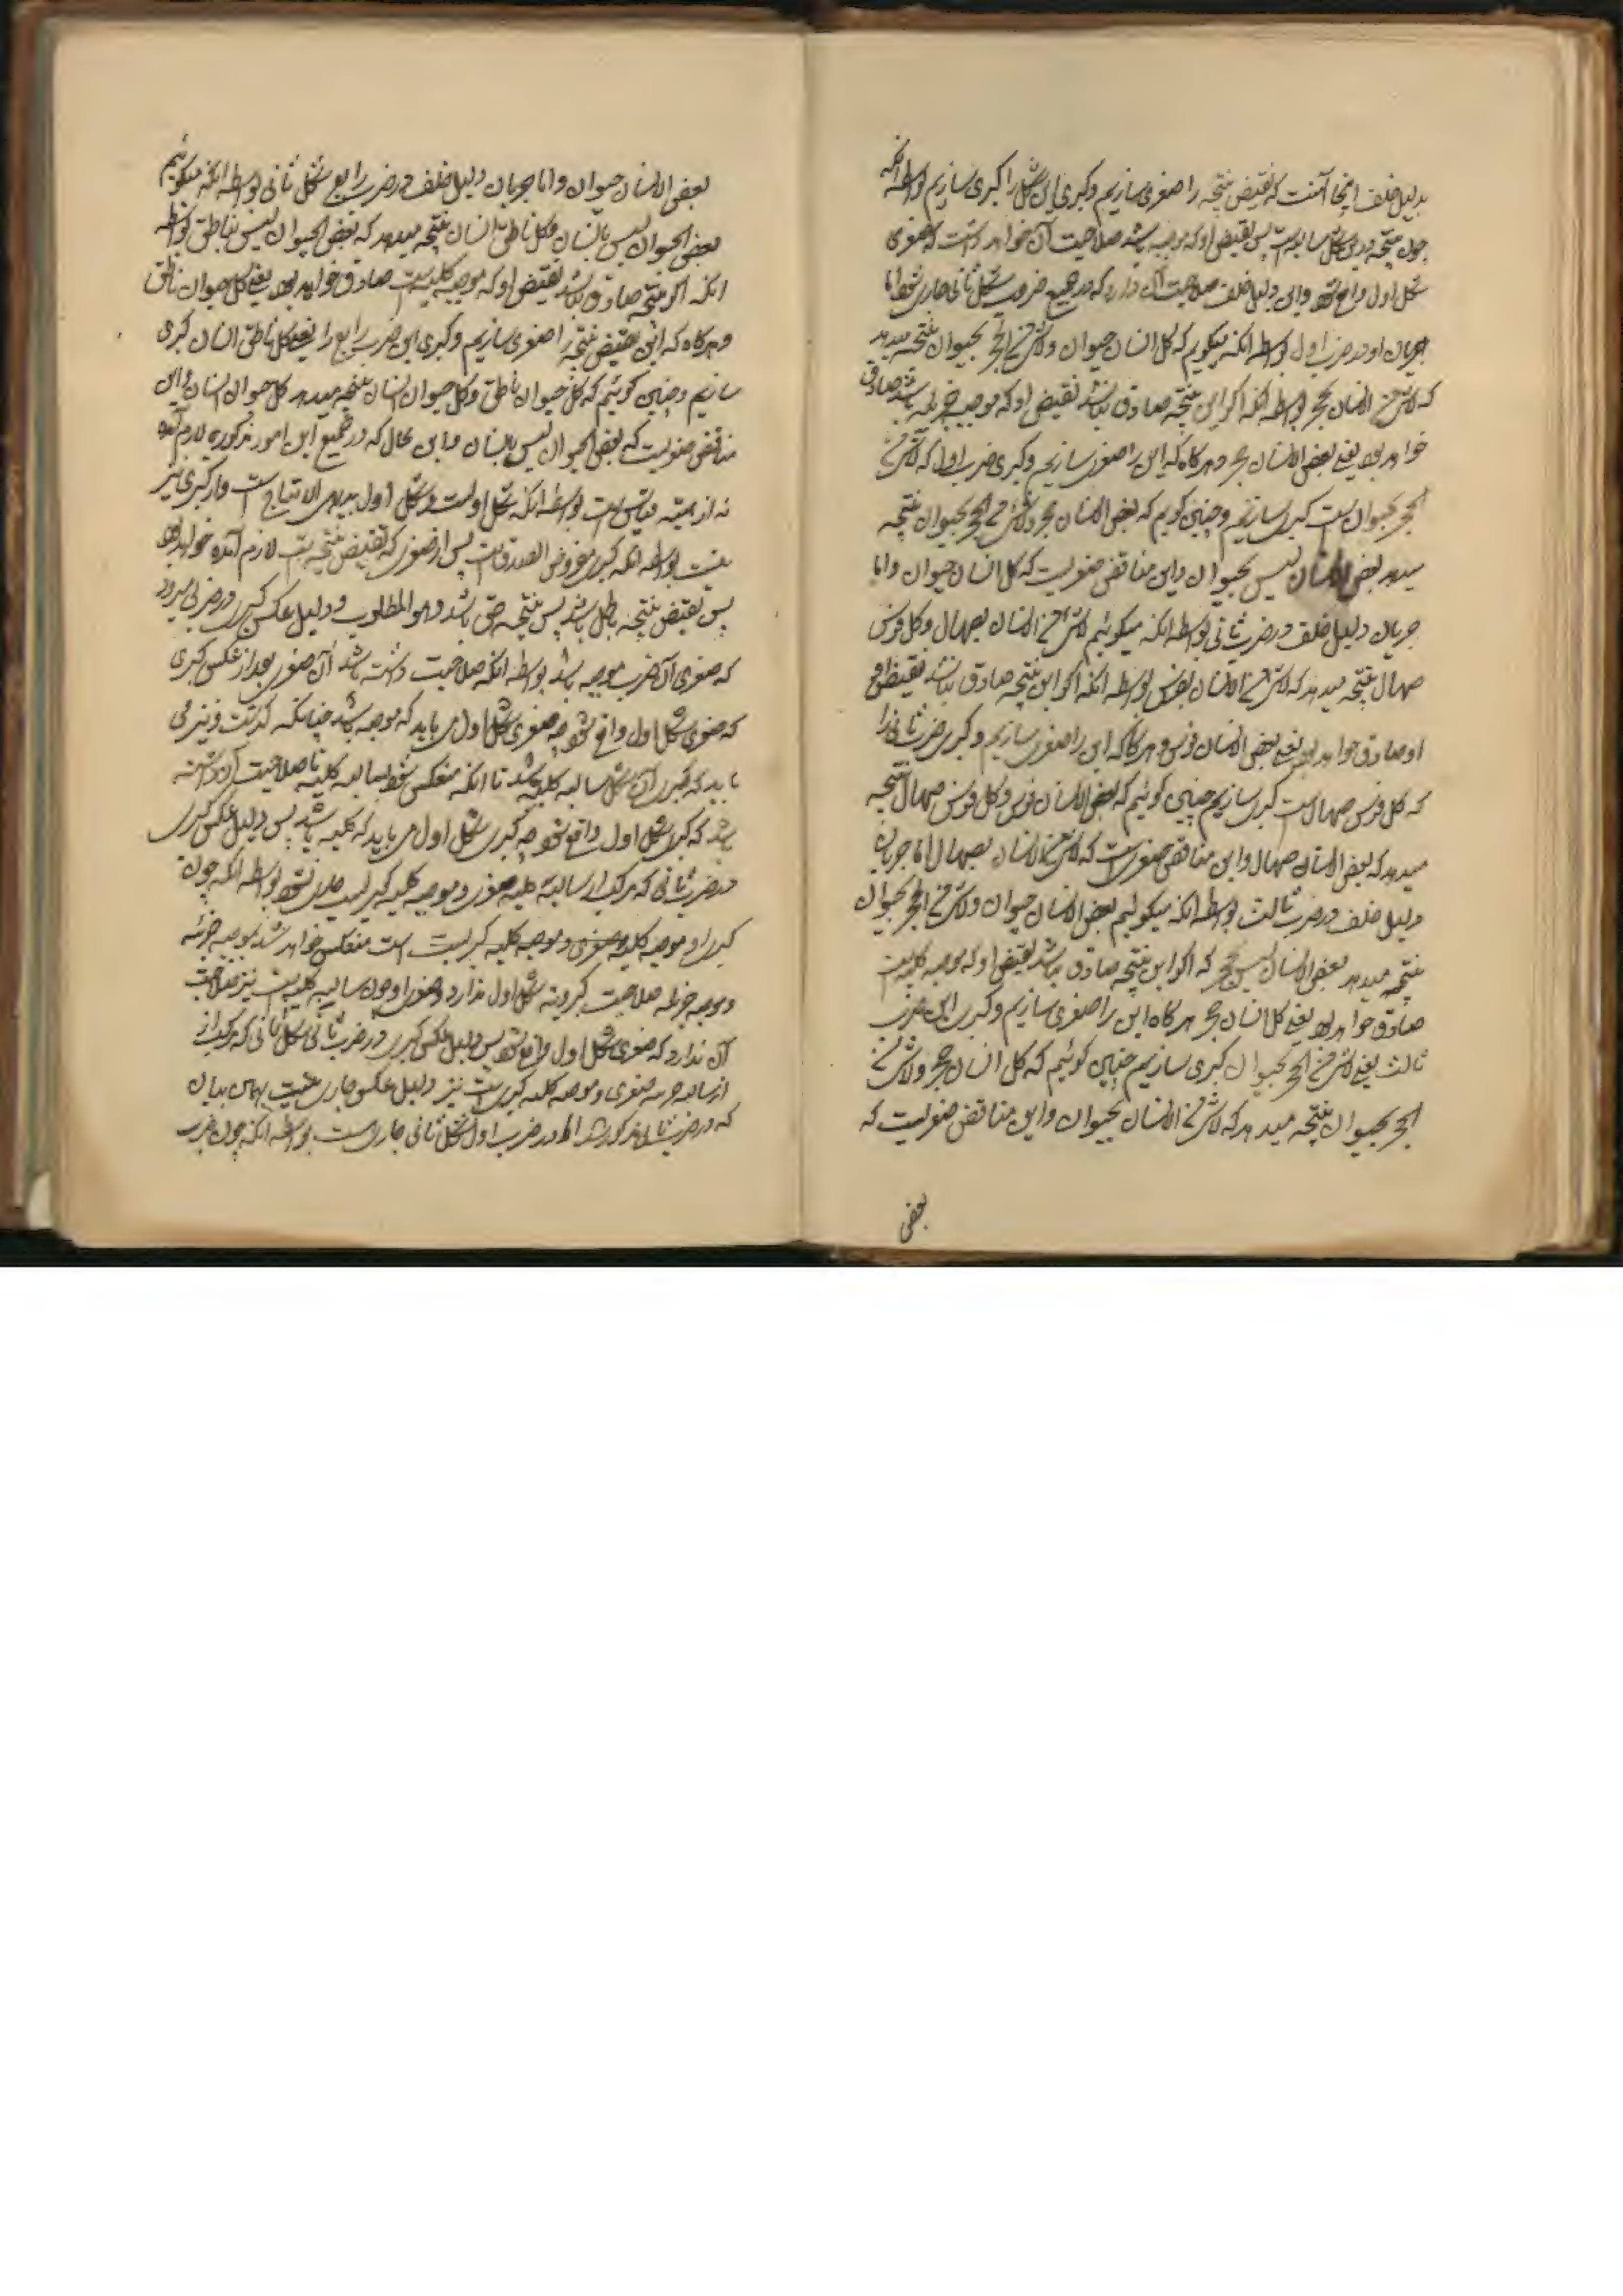 بدلیل خلف اینجا آنست که نقیض نتیجه را صغری سازیم و کبری این شکل را کبری سازیم بواسطه آنکه
چون نتیجه درین شکل سالبه است پس نقیض او که موجبه باشد صلاحیت آن خواهد داشت که صغری
شکل اول واقع شود و این دلیل خلف صلاحیت آن دارد که در جمیع ضروب شکل ثانی جاری شود اما
جریان او در ضرب اول بواسطه آنکه میگویم که کل انسان حیوان ولا شئ من الحجر بحیوان نتیجه میدهد
که لا شئ من الانسان بحجر بواسطه آنکه اگر این نتیجه صادق نباشد نقیض او که موجبه جزئیه باشد صادق
خواهد بود یعنی بعض الانسان حجر و هرگاه که این را صغری سازیم و کبری ضرب اول که لا شئ من
الحجر بحیوان است کبری سازیم و چنین گویم که بعض الانسان حجر ولا شئ من الحجر بحیوان نتیجه
میدهد بعض الانسان لیس بحیوان و این مناقض صغریست که کل انسان حیوان و اما
جریان دلیل خلف در ضرب ثانی بواسطه آنکه میگوئیم لا شئ من الانسان بصهال و کل فرس
صهال نتیجه میدهد که لا شئ من الانسان بفرس بواسطه آنکه اگر این نتیجه صادق نباشد نقیض
او صادق خواهد بود یعنی بعض الانسان فرس و هرگاه که این را صغری سازیم و کبری ضرب ثانی را
که کل فرس صهال است کبری سازیم چنین گوئیم که بعض الانسان فرس و کل فرس صهال نتیجه
میدهد که بعض الانسان صهال و این مناقض صغری است که لا شئ من الانسان بصهال اما جریان
دلیل خلف در ضرب ثالث بواسطه آنکه میگوئیم بعض الانسان حیوان ولا شئ من الحجر بحیوان
نتیجه میدهد بعض الانسان لیس بحجر که اگر این نتیجه صادق نباشد نقیض او که موجبه کلیه است
صادق خواهد بود یعنی کل انسان حجر هرگاه این را صغری سازیم و کبری این ضرب
ثالث یعنی لا شئ من الحجر بحیوان کبری سازیم چنین گوئیم که کل انسان حجر ولا شئ من
الحجر بحیوان نتیجه میدهد که لا شئ من الانسان بحیوان و این مناقض صغریست که
بعض
بعض الانسان حیوان و اما جریان دلیل خلف در ضرب رابع شکل ثانی بواسطه آنکه میگوئیم
بعض الحیوان لیس بانسان و کل ناطق انسان نتیجه میدهد که بعض الحیوان لیس بناطق بواسطه
آنکه اگر نتیجه صادق نباشد نقیض او که موجبه کلیه است صادق خواهد بود یعنی کل حیوان ناطق
و هرگاه که این نقیض نتیجه را صغری سازیم و کبری این ضرب رابع را یعنی کل ناطق انسان کبری
سازیم و چنین گوئیم که کل حیوان ناطق و کل ناطق انسان نتیجه میدهد کل حیوان انسان و این
مناقض صغریست که بعض الحیوان لیس بانسان و این محال که در جمیع این امور مذکوره لازم آمده
نه از هیئة قیاس است بواسطه آنکه شکل اولست و شکل اول بدیهی الانتاج است و از کبری نیز
نیست بواسطه آنکه کبری مفروض الصدق است پس از صغری که نقیض نتیجه است لازم آمده خواهد بود
پس نقیض نتیجه باطل باشد پس نتیجه حق باشد و هو المطلوب و دلیل عکس کبری در ضربی میرود
که صغری آن ضرب موجبه باشد بواسطه آنکه صلاحیت داشته باشد آن صغری بعد از عکس کبری
که صغری شکل اول واقع شود چه صغری شکل اول می باید که موجبه باشد چنانکه گذشت و نیز می
باید که کبری آن شکل سالبه کلیه باشد تا آنکه منعکس شود بسالبه کلیه تا صلاحیت آن داشته
باشد که کبری شکل اول واقع شود چه کبری شکل اول می باید که کلیه باشد پس دلیل عکس کبری
در ضرب ثانی که مرکب از سالبه کلیه صغری و موجبه کلیه کبریست جاری نشود بواسطه آنکه چون
کبری او موجبه کلیه صغری و موجبه کلیه کبریست است منعکس خواهد شد بموجبه جزئیه
و موجبه جزئیه صلاحیت کبرویة شکل اول ندارد و صغری او چون سالبه کلیه است نیز صلاحیت
آن ندارد که صغری شکل اول واقع شود پس دلیل عکس کبری در ضرب ثانی شکل ثانی که مرکب از
از سالبه جزئیه صغری و موجبه کلیه کبری است نیز دلیل عکس جاری نیست بهمان بیان
که در ضرب ثانی مذکور شد اما در ضرب اول شکل ثانی جاریست بواسطه آنکه چون ضرب